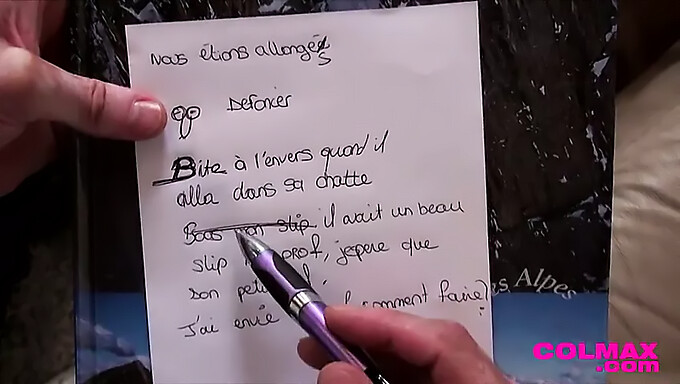 Nous étions allongés
S
Defoncer
Bite à l'envers quand il
alla dans sa chatte
Sous mon slip il avait un beau
slip prof, j'epere que
son petit
J'ai envie comment faire?
es Alpes
COLMAX
.com